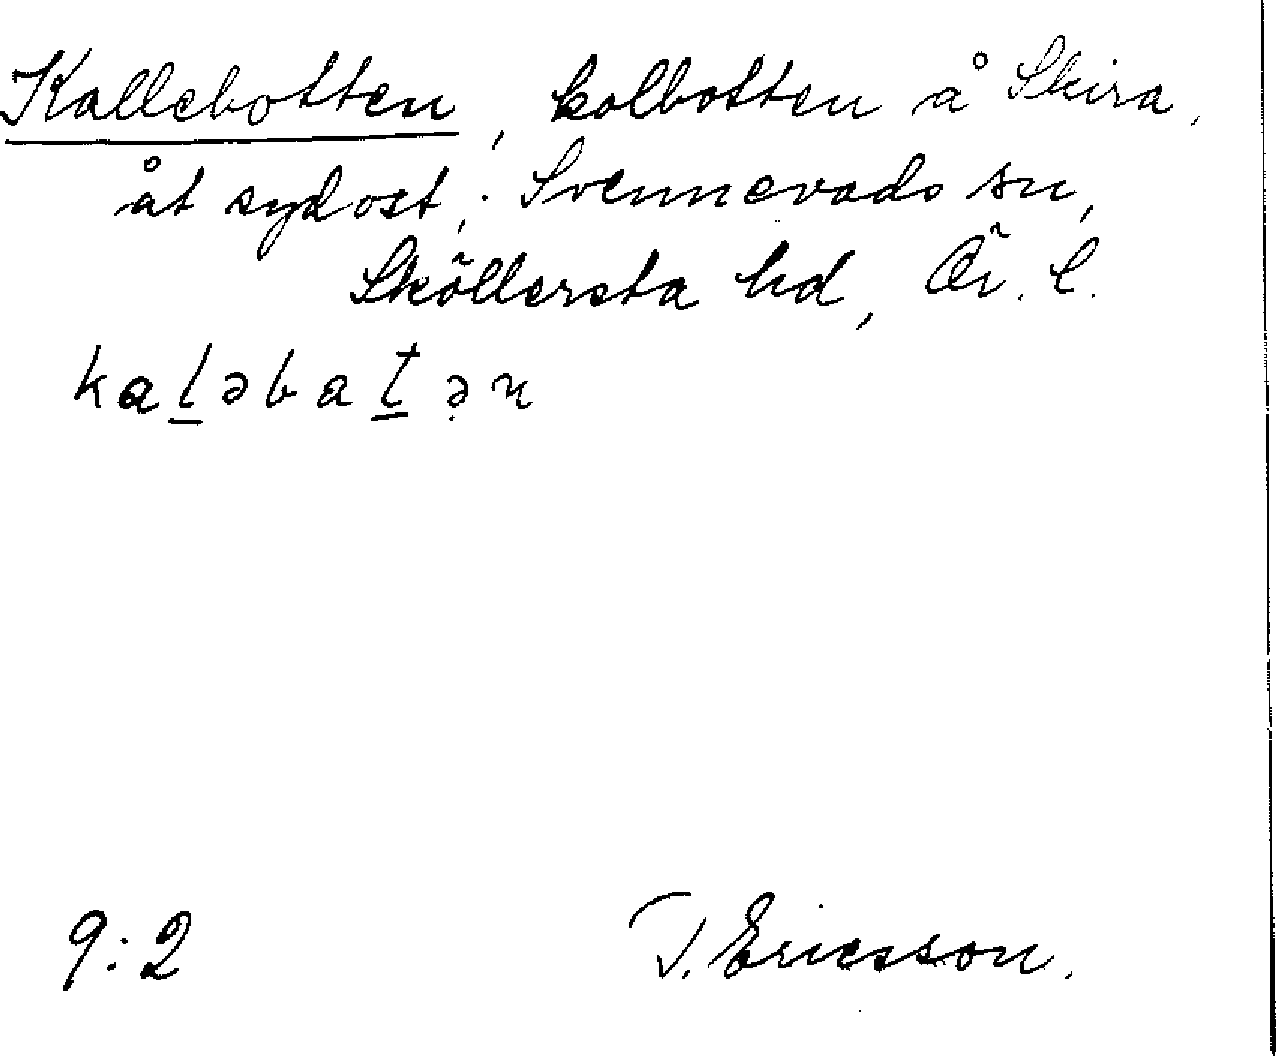 Kallebotten, kolbotten å Skira,
åt sydost,; Svennevads sn,
Sköllersta hd, Ör. l.
ka̱l̲əbat̲ə̣n
9:2 T. Ericsson.